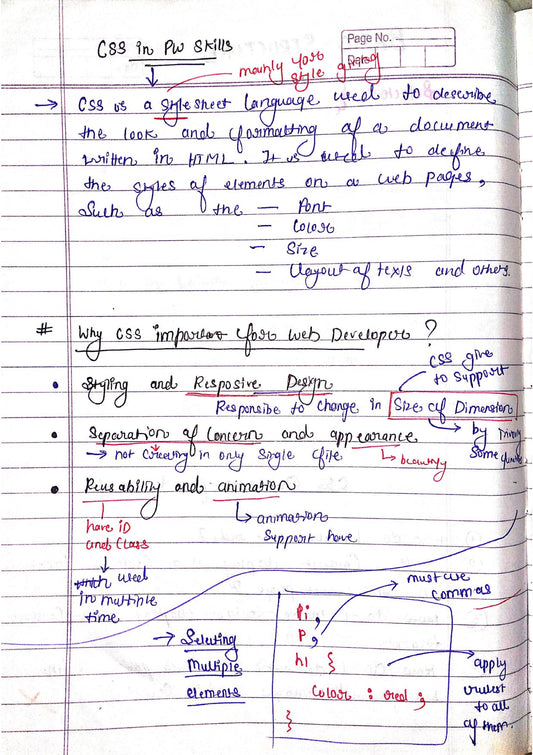 Page No.
Date
CSS in PW Skills
mainly for
style giving
→ CSS is a stylesheet language used to describe
the look and formatting of a document
written in HTML. It is used to define
the styles of elements on a web pages,
Such as the — Font
— Color
— Size
— Layout of texts and others.
# Why CSS important for web Developer ?
CSS give
to support
• Styling and Resposive Design
Responsibe to change in Size of Dimension
• Separation of Concern and appearance
→ by
some
→ not creating in only single file
↳ beautify
• Reusability and animation
have ID
and Class
↳ animation
Support have
used
in multiple
time
must use
commas
→ Selecting
Multiple
elements
P1,
P,
h1 {
Color : red ;
}
apply
to all
of them.